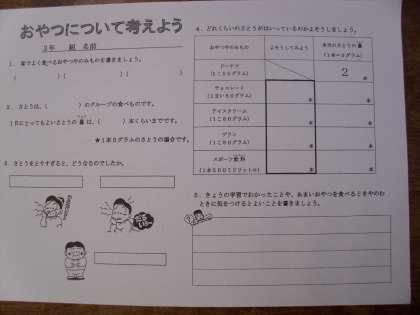 おやつについて考えよう
3年 組 名前
1. 家でよく食べるおやつやのみものを書きましょう。
( )( )( )
2. さとうは、( )のグループの食べものです。
1日にとってもよいさとうの量は、( )本くらいまでです。
★1本3グラムのさとうの場合です。
3. さとうをとりすぎると、どうなるのでしたか。
4. どれくらいのさとうがはいっているのかよそうしましょう。
おやつやのみもの よそうしてみよう 本当のさとうの量
(1本=3グラム)
ドーナツ 2 本
チョコレート 本 本
アイスクリーム 本 本
プリン 本 本
スポーツ飲料 本 本
5. きょうの学習でわかったことや、あまいおやつを食べるときやのむ
ときに気をつけるとよいことを書きましょう。